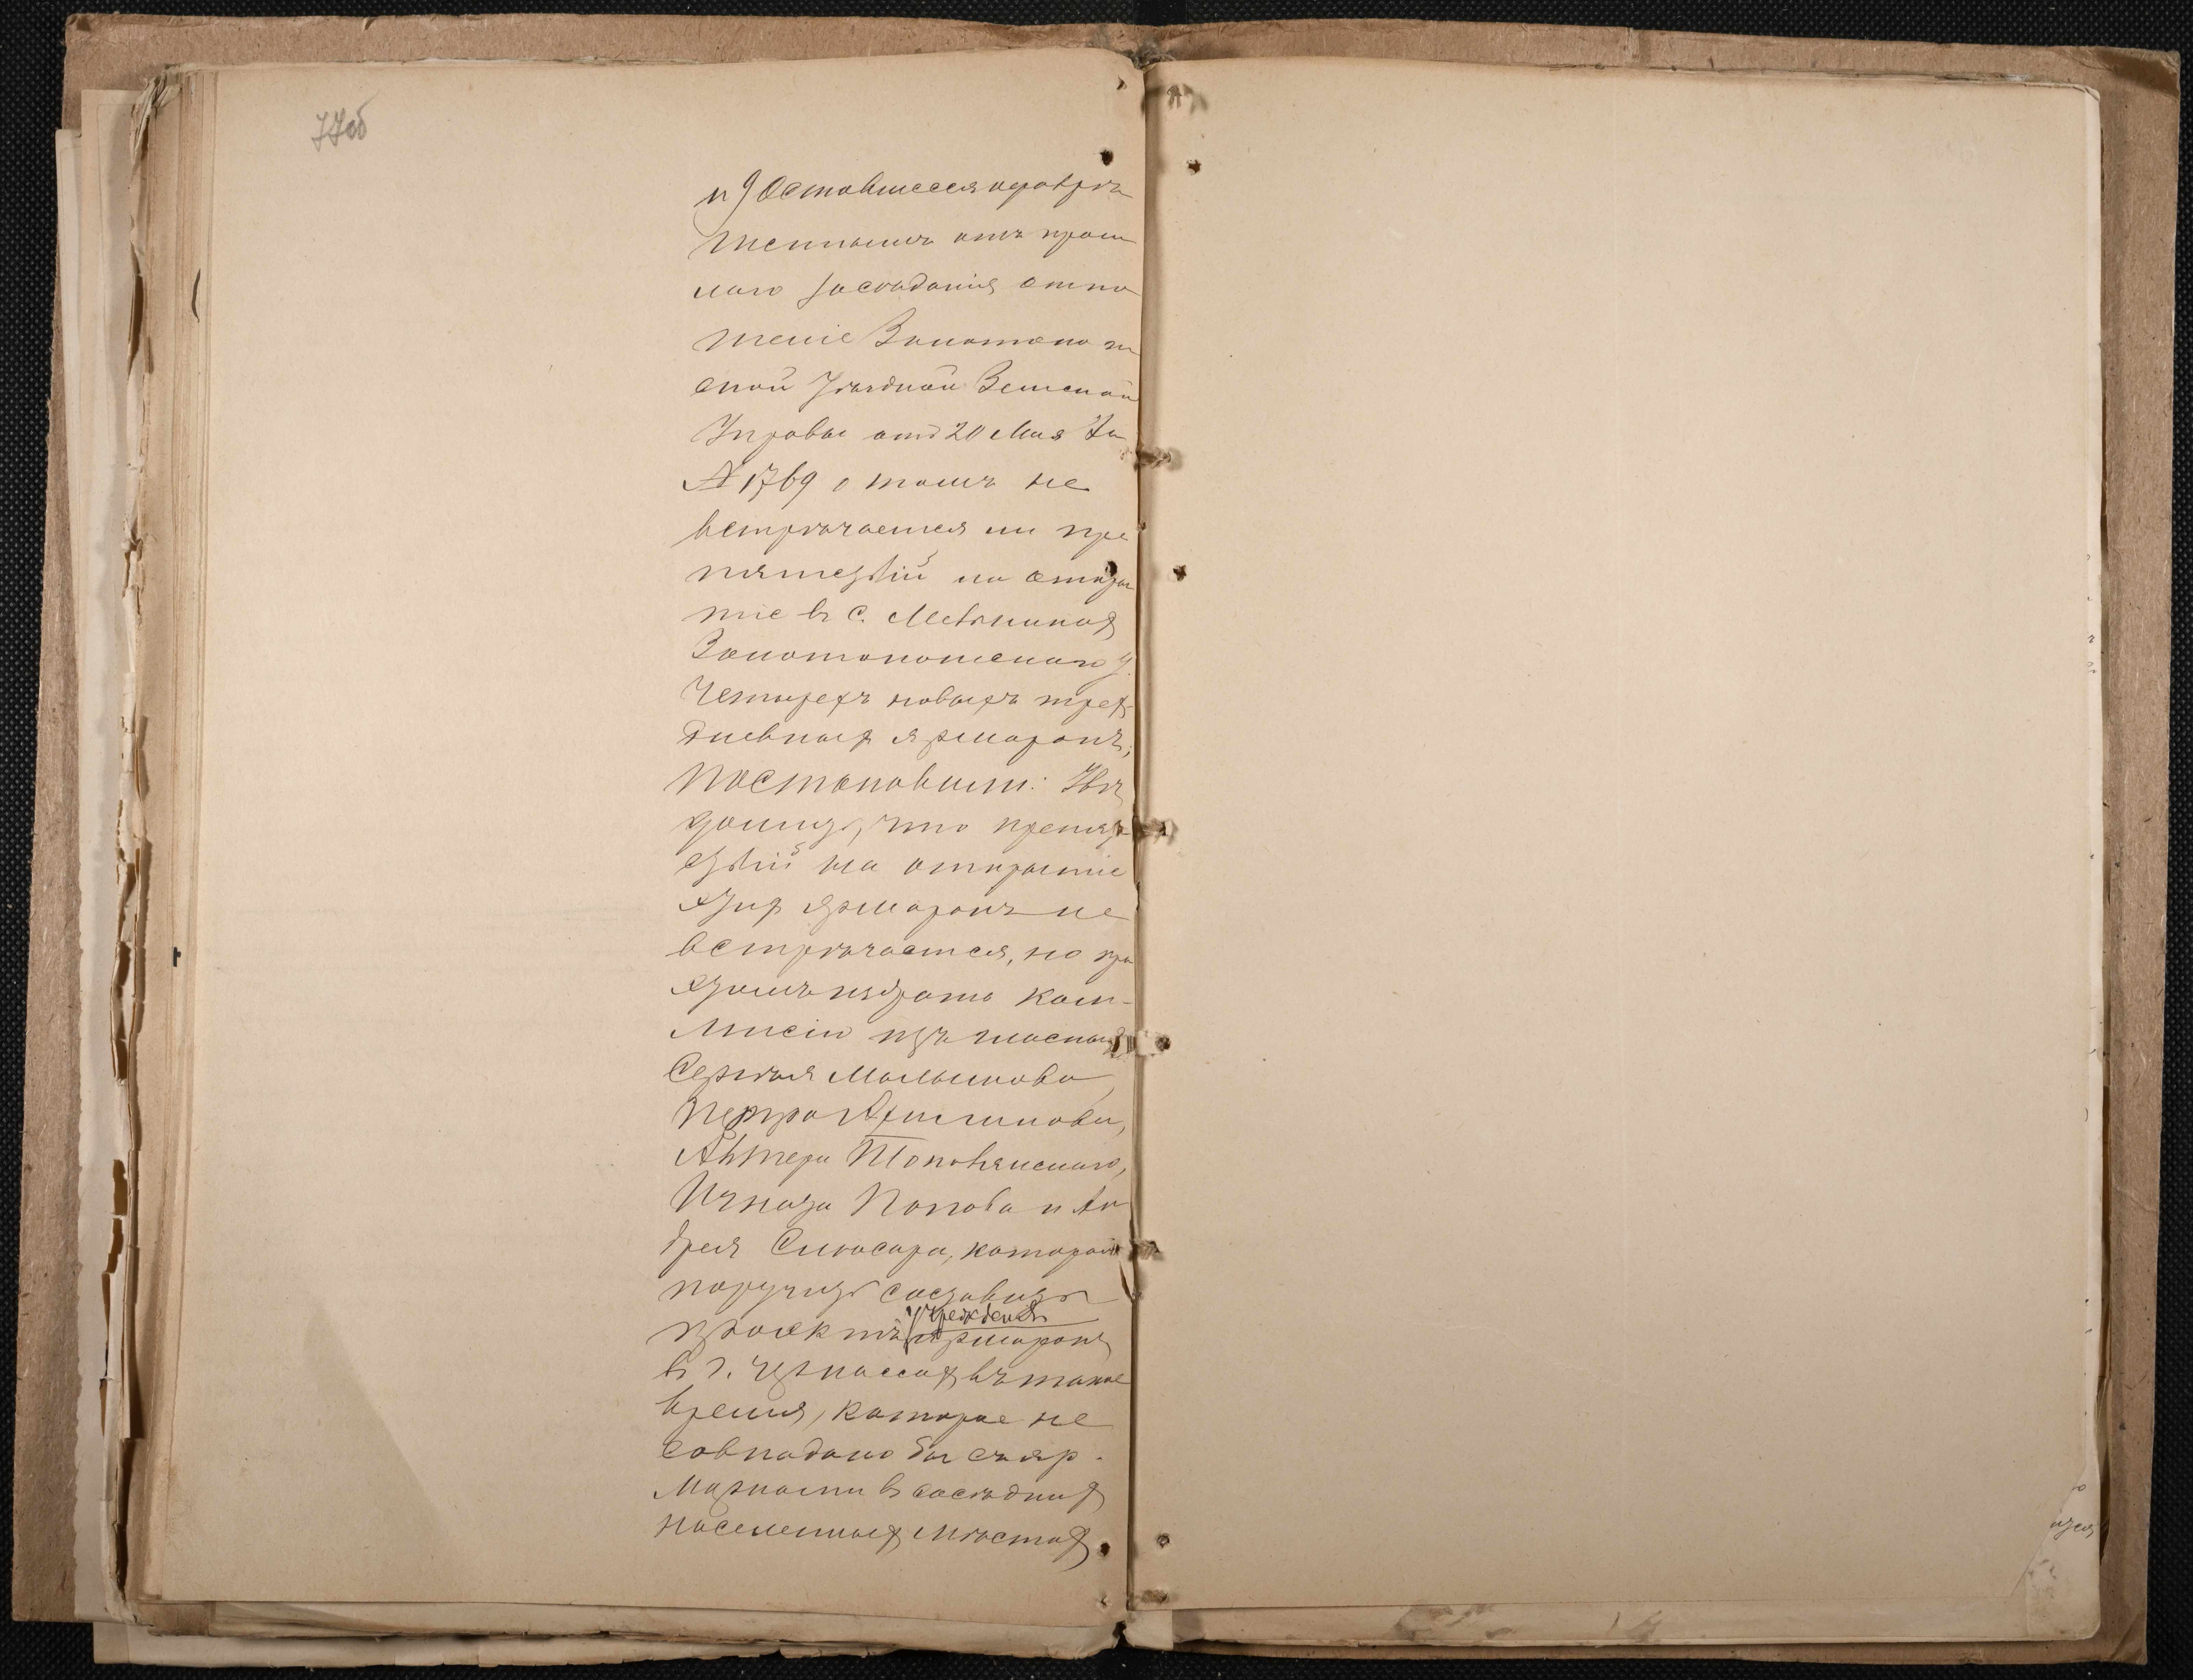 77об
и) Оставшееся неразрѣ
шеннымъ отъ прош
лаго засѣданія отно
шеніе Золотонош
ской Уѣздной Земской
Управы отъ 20 Мая за
№ 1769 о томъ не
встрѣчается ли пре
пятствій на откры
тіе въ с. Мельникахъ
Золотоношскаго у.
четырехъ новыхъ трех
дневныхъ ярмарокъ,
постановили: Увѣ
домить, что препят
ствій на открытіе
этихъ ярмарокъ не
встрѣчается, но при
этомъ избрать Ком-
мисію изъ гласныхъ
Сергѣя Малышова
Петра
Поповянскаго,
Игната Попова и Ан
дрея Слюсаря, которой
поручить составить
учрежденія
проектъ ярмарокъ
въ г. Черкассахъ въ такое
время, которое не
совпадало бы съ яр-
марками въ сосѣднихъ
населенныхъ мѣстахъ.